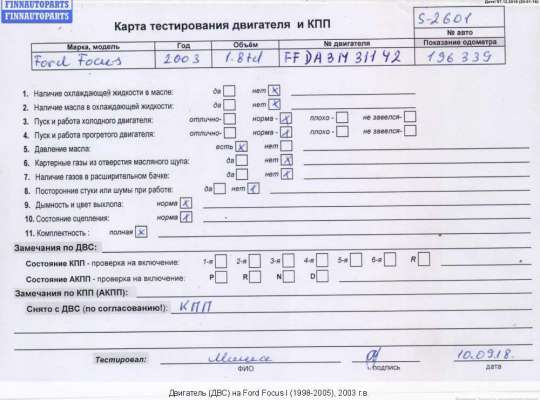 FINNAUTOPARTS
FINNAUTOPARTS
FINNAUTOPARTS
Карта тестирования двигателя и КПП
S-2601
№ авто
Марка, модель Год Объём № двигателя Показание одометра
Ford Focus 2003 1.8td FFDA3M31142 196339
1. Наличие охлаждающей жидкости в масле: да нет x
2. Наличие масла в охлаждающей жидкости: да нет x
3. Пуск и работа холодного двигателя: отлично- норма - x плохо - не завелся-
4. Пуск и работа прогретого двигателя: отлично- норма - x плохо - не завелся-
5. Давление масла: есть x нет
6. Картерные газы из отверстия масляного щупа: да нет x
7. Наличие газов в расширительном бачке: да нет x
8. Посторонние стуки или шумы при работе: да нет x
9. Дымность и цвет выхлопа: норма x
10. Состояние сцепления: норма x
11. Комплектность : полная x
Замечания по ДВС:
Состояние КПП - проверка на включение: 1-я 2-я 3-я 4-я 5-я 6-я R
Состояние АКПП - проверка на включение: P R N D
Замечания по КПП (АКПП):
Снято с ДВС (по согласованию!): КПП
Тестировал: 10.09.18.
ФИО подпись дата
Двигатель (ДВС) на Ford Focus I (1998-2005), 2003 г.в.